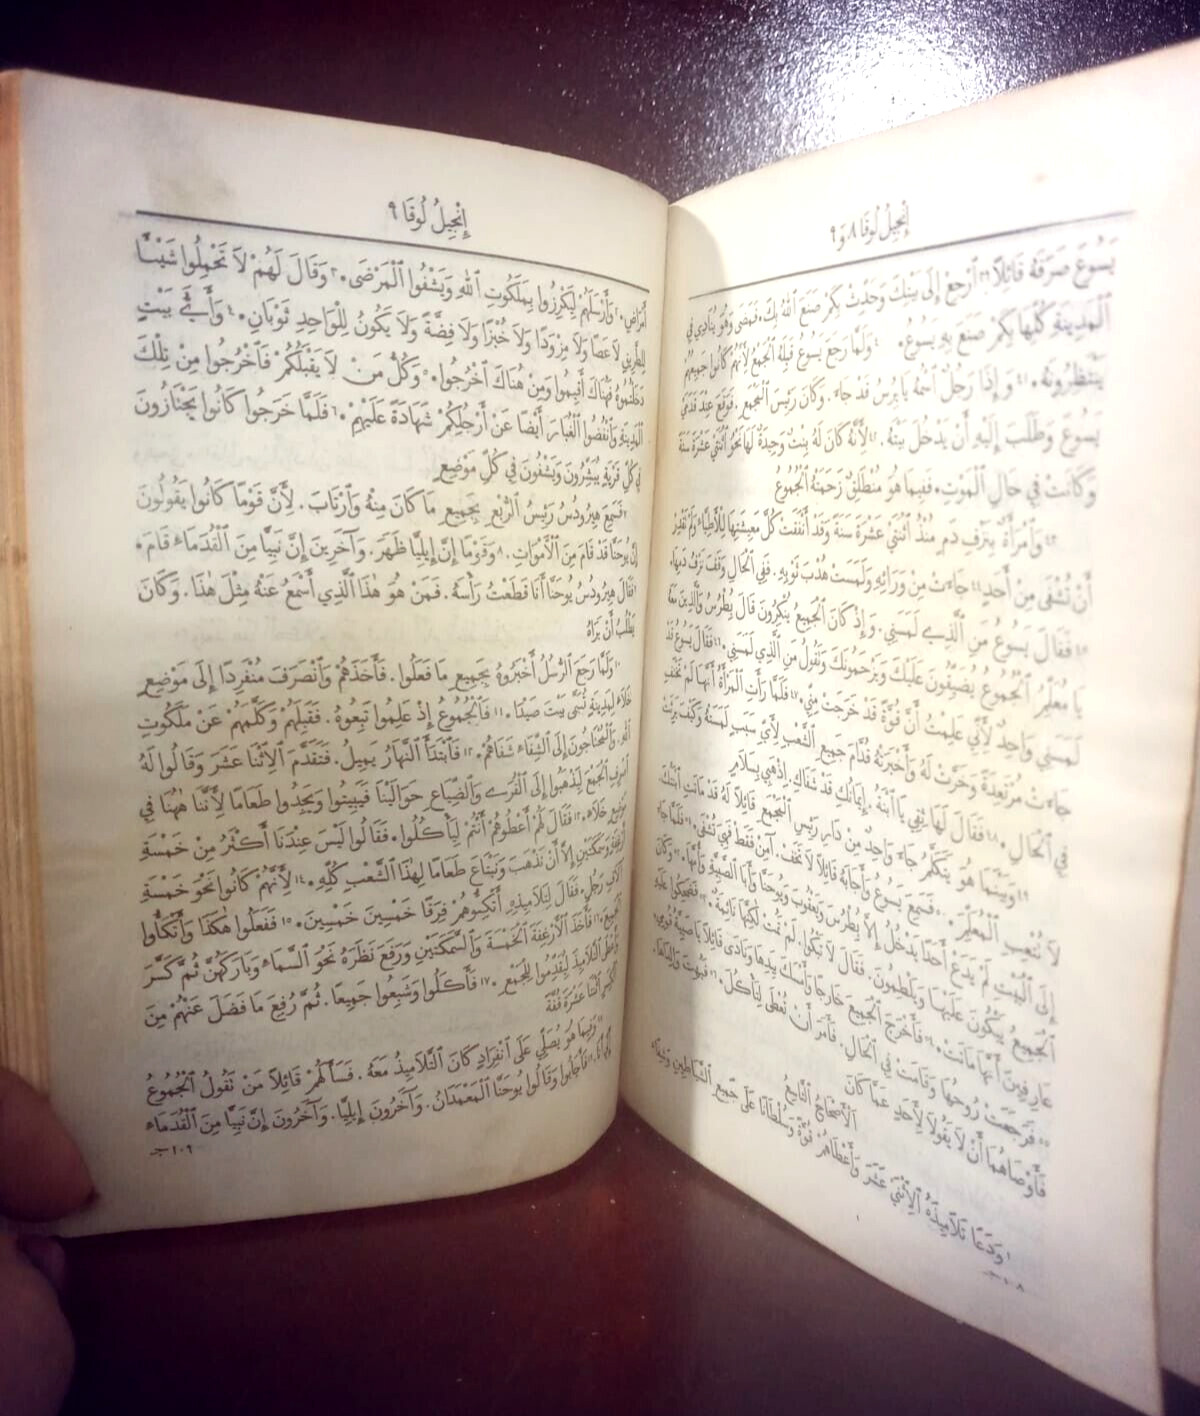 إِنْجِيلُ لُوقَا ٨ و ٩
يَسُوعَ صَرَفَهُ قَائِلًا ٣٩ ٱرْجِعْ إِلَى بَيْتِكَ وَحَدِّثْ بِكَمْ صَنَعَ ٱللهُ بِكَ. فَمَضَى وَهُوَ يُنَادِي فِي
ٱلْمَدِينَةِ كُلِّهَا بِكَمْ صَنَعَ بِهِ يَسُوعُ. ٤٠ وَلَمَّا رَجَعَ يَسُوعُ قَبِلَهُ ٱلْجَمْعُ لِأَنَّهُمْ كَانُوا جَمِيعُهُمْ
يَنْتَظِرُونَهُ. ٤١ وَإِذَا رَجُلٌ ٱسْمُهُ يَايِرُسُ قَدْ جَاءَ. وَكَانَ رَئِيسَ ٱلْمَجْمَعِ. فَوَقَعَ عِنْدَ قَدَمَيْ
يَسُوعَ وَطَلَبَ إِلَيْهِ أَنْ يَدْخُلَ بَيْتَهُ. ٤٢ لِأَنَّهُ كَانَ لَهُ بِنْتٌ وَحِيدَةٌ لَهَا نَحْوُ ٱثْنَتَيْ عَشْرَةَ سَنَةً
وَكَانَتْ فِي حَالِ ٱلْمَوْتِ. فَفِيمَا هُوَ مُنْطَلِقٌ زَحَمَتْهُ ٱلْجُمُوعُ
٤٣ وَٱمْرَأَةٌ بِنَزْفِ دَمٍ مُنْذُ ٱثْنَتَيْ عَشْرَةَ سَنَةً وَقَدْ أَنْفَقَتْ كُلَّ مَعِيشَتِهَا لِلْأَطِبَّاءِ وَلَمْ تَقْدِرْ
أَنْ تُشْفَى مِنْ أَحَدٍ ٤٤ جَاءَتْ مِنْ وَرَائِهِ وَلَمَسَتْ هُدْبَ ثَوْبِهِ. فَفِي ٱلْحَالِ وَقَفَ نَزْفُ دَمِهَا.
٤٥ فَقَالَ يَسُوعُ مَنِ ٱلَّذِي لَمَسَنِي. وَإِذْ كَانَ ٱلْجَمِيعُ يُنْكِرُونَ قَالَ بُطْرُسُ وَٱلَّذِينَ مَعَهُ
يَا مُعَلِّمُ ٱلْجُمُوعُ يُضَيِّقُونَ عَلَيْكَ وَيَزْحَمُونَكَ وَتَقُولُ مَنِ ٱلَّذِي لَمَسَنِي. ٤٦ فَقَالَ يَسُوعُ قَدْ
لَمَسَنِي وَاحِدٌ لِأَنِّي عَلِمْتُ أَنَّ قُوَّةً قَدْ خَرَجَتْ مِنِّي. ٤٧ فَلَمَّا رَأَتِ ٱلْمَرْأَةُ أَنَّهَا لَمْ تَخْتَفِ
جَاءَتْ مُرْتَعِدَةً وَخَرَّتْ لَهُ وَأَخْبَرَتْهُ قُدَّامَ جَمِيعِ ٱلشَّعْبِ لِأَيِّ سَبَبٍ لَمَسَتْهُ وَكَيْفَ بَرِئَتْ
فِي ٱلْحَالِ. ٤٨ فَقَالَ لَهَا ثِقِي يَا ٱبْنَةُ. إِيمَانُكِ قَدْ شَفَاكِ. اِذْهَبِي بِسَلَامٍ
٤٩ وَبَيْنَمَا هُوَ يَتَكَلَّمُ جَاءَ وَاحِدٌ مِنْ دَارِ رَئِيسِ ٱلْمَجْمَعِ قَائِلًا لَهُ قَدْ مَاتَتِ ٱبْنَتُكَ.
لَا تُتْعِبِ ٱلْمُعَلِّمَ. ٥٠ فَسَمِعَ يَسُوعُ وَأَجَابَهُ قَائِلًا لَا تَخَفْ. آمِنْ فَقَطْ فَهِيَ تُشْفَى. ٥١ فَلَمَّا جَاءَ
إِلَى ٱلْبَيْتِ لَمْ يَدَعْ أَحَدًا يَدْخُلُ إِلَّا بُطْرُسَ وَيَعْقُوبَ وَيُوحَنَّا وَأَبَا ٱلصَّبِيَّةِ وَأُمَّهَا. ٥٢ وَكَانَ
ٱلْجَمِيعُ يَبْكُونَ عَلَيْهَا وَيَلْطِمُونَ. فَقَالَ لَا تَبْكُوا. لَمْ تَمُتْ لَكِنَّهَا نَائِمَةٌ. ٥٣ فَضَحِكُوا عَلَيْهِ
عَارِفِينَ أَنَّهَا مَاتَتْ. ٥٤ فَأَخْرَجَ ٱلْجَمِيعَ خَارِجًا وَأَمْسَكَ بِيَدِهَا وَنَادَى قَائِلًا يَا صَبِيَّةُ قُومِي.
٥٥ فَرَجَعَتْ رُوحُهَا وَقَامَتْ فِي ٱلْحَالِ. فَأَمَرَ أَنْ تُعْطَى لِتَأْكُلَ. ٥٦ فَبُهِتَ وَالِدَاهَا.
فَأَوْصَاهُمَا أَنْ لَا يَقُولَا لِأَحَدٍ عَمَّا كَانَ
ٱلْأَصْحَاحُ ٱلتَّاسِعُ
١ وَدَعَا تَلَامِيذَهُ ٱلِٱثْنَيْ عَشَرَ وَأَعْطَاهُمْ قُوَّةً وَسُلْطَانًا عَلَى جَمِيعِ ٱلشَّيَاطِينِ وَشِفَاءَ
١٠٨
إِنْجِيلُ لُوقَا ٩
أَمْرَاضٍ. ٢ وَأَرْسَلَهُمْ لِيَكْرِزُوا بِمَلَكُوتِ ٱللهِ وَيَشْفُوا ٱلْمَرْضَى. ٣ وَقَالَ لَهُمْ لَا تَحْمِلُوا شَيْئًا
لِلطَّرِيقِ لَا عَصًا وَلَا مِزْوَدًا وَلَا خُبْزًا وَلَا فِضَّةً وَلَا يَكُونُ لِلْوَاحِدِ ثَوْبَانِ. ٤ وَأَيُّ بَيْتٍ
دَخَلْتُمُوهُ فَهُنَاكَ أَقِيمُوا وَمِنْ هُنَاكَ ٱخْرُجُوا. ٥ وَكُلُّ مَنْ لَا يَقْبَلُكُمْ فَٱخْرُجُوا مِنْ تِلْكَ
ٱلْمَدِينَةِ وَٱنْفُضُوا ٱلْغُبَارَ أَيْضًا عَنْ أَرْجُلِكُمْ شَهَادَةً عَلَيْهِمْ. ٦ فَلَمَّا خَرَجُوا كَانُوا يَجْتَازُونَ
فِي كُلِّ قَرْيَةٍ يُبَشِّرُونَ وَيَشْفُونَ فِي كُلِّ مَوْضِعٍ
٧ فَسَمِعَ هِيرُودُسُ رَئِيسُ ٱلرُّبْعِ بِجَمِيعِ مَا كَانَ مِنْهُ وَٱرْتَابَ. لِأَنَّ قَوْمًا كَانُوا يَقُولُونَ
إِنَّ يُوحَنَّا قَدْ قَامَ مِنَ ٱلْأَمْوَاتِ. ٨ وَقَوْمًا إِنَّ إِيلِيَّا ظَهَرَ. وَآخَرِينَ إِنَّ نَبِيًّا مِنَ ٱلْقُدَمَاءِ قَامَ.
٩ فَقَالَ هِيرُودُسُ يُوحَنَّا أَنَا قَطَعْتُ رَأْسَهُ. فَمَنْ هُوَ هٰذَا ٱلَّذِي أَسْمَعُ عَنْهُ مِثْلَ هٰذَا. وَكَانَ
يَطْلُبُ أَنْ يَرَاهُ
١٠ وَلَمَّا رَجَعَ ٱلرُّسُلُ أَخْبَرُوهُ بِجَمِيعِ مَا فَعَلُوا. فَأَخَذَهُمْ وَٱنْصَرَفَ مُنْفَرِدًا إِلَى مَوْضِعٍ
خَلَاءٍ لِمَدِينَةٍ تُسَمَّى بَيْتَ صَيْدَا. ١١ فَٱلْجُمُوعُ إِذْ عَلِمُوا تَبِعُوهُ. فَقَبِلَهُمْ وَكَلَّمَهُمْ عَنْ مَلَكُوتِ
ٱللهِ. وَٱلْمُحْتَاجُونَ إِلَى ٱلشِّفَاءِ شَفَاهُمْ. ١٢ فَٱبْتَدَأَ ٱلنَّهَارُ يَمِيلُ. فَتَقَدَّمَ ٱلِٱثْنَا عَشَرَ وَقَالُوا لَهُ
ٱصْرِفِ ٱلْجَمْعَ لِيَذْهَبُوا إِلَى ٱلْقُرَى وَٱلضِّيَاعِ حَوَالَيْنَا فَيَبِيتُوا وَيَجِدُوا طَعَامًا لِأَنَّنَا هٰهُنَا فِي
مَوْضِعٍ خَلَاءٍ. ١٣ فَقَالَ لَهُمْ أَعْطُوهُمْ أَنْتُمْ لِيَأْكُلُوا. فَقَالُوا لَيْسَ عِنْدَنَا أَكْثَرُ مِنْ خَمْسَةِ
أَرْغِفَةٍ وَسَمَكَتَيْنِ إِلَّا أَنْ نَذْهَبَ وَنَبْتَاعَ طَعَامًا لِهٰذَا ٱلشَّعْبِ كُلِّهِ. ١٤ لِأَنَّهُمْ كَانُوا نَحْوَ خَمْسَةِ
آلَافِ رَجُلٍ. فَقَالَ لِتَلَامِيذِهِ أَتْكِئُوهُمْ فِرَقًا خَمْسِينَ خَمْسِينَ. ١٥ فَفَعَلُوا هٰكَذَا وَأَتْكَأُوا
ٱلْجَمِيعَ. ١٦ فَأَخَذَ ٱلْأَرْغِفَةَ ٱلْخَمْسَةَ وَٱلسَّمَكَتَيْنِ وَرَفَعَ نَظَرَهُ نَحْوَ ٱلسَّمَاءِ وَبَارَكَهُنَّ ثُمَّ كَسَّرَ
وَأَعْطَى ٱلتَّلَامِيذَ لِيُقَدِّمُوا لِلْجَمْعِ. ١٧ فَأَكَلُوا وَشَبِعُوا جَمِيعًا. ثُمَّ رُفِعَ مَا فَضَلَ عَنْهُمْ مِنَ
ٱلْكِسَرِ ٱثْنَتَا عَشْرَةَ قُفَّةً
١٨ وَفِيمَا هُوَ يُصَلِّي عَلَى ٱنْفِرَادٍ كَانَ ٱلتَّلَامِيذُ مَعَهُ. فَسَأَلَهُمْ قَائِلًا مَنْ تَقُولُ ٱلْجُمُوعُ
أَنِّي أَنَا. ١٩ فَأَجَابُوا وَقَالُوا يُوحَنَّا ٱلْمَعْمَدَانُ. وَآخَرُونَ إِيلِيَّا. وَآخَرُونَ إِنَّ نَبِيًّا مِنَ ٱلْقُدَمَاءِ
١٠٩